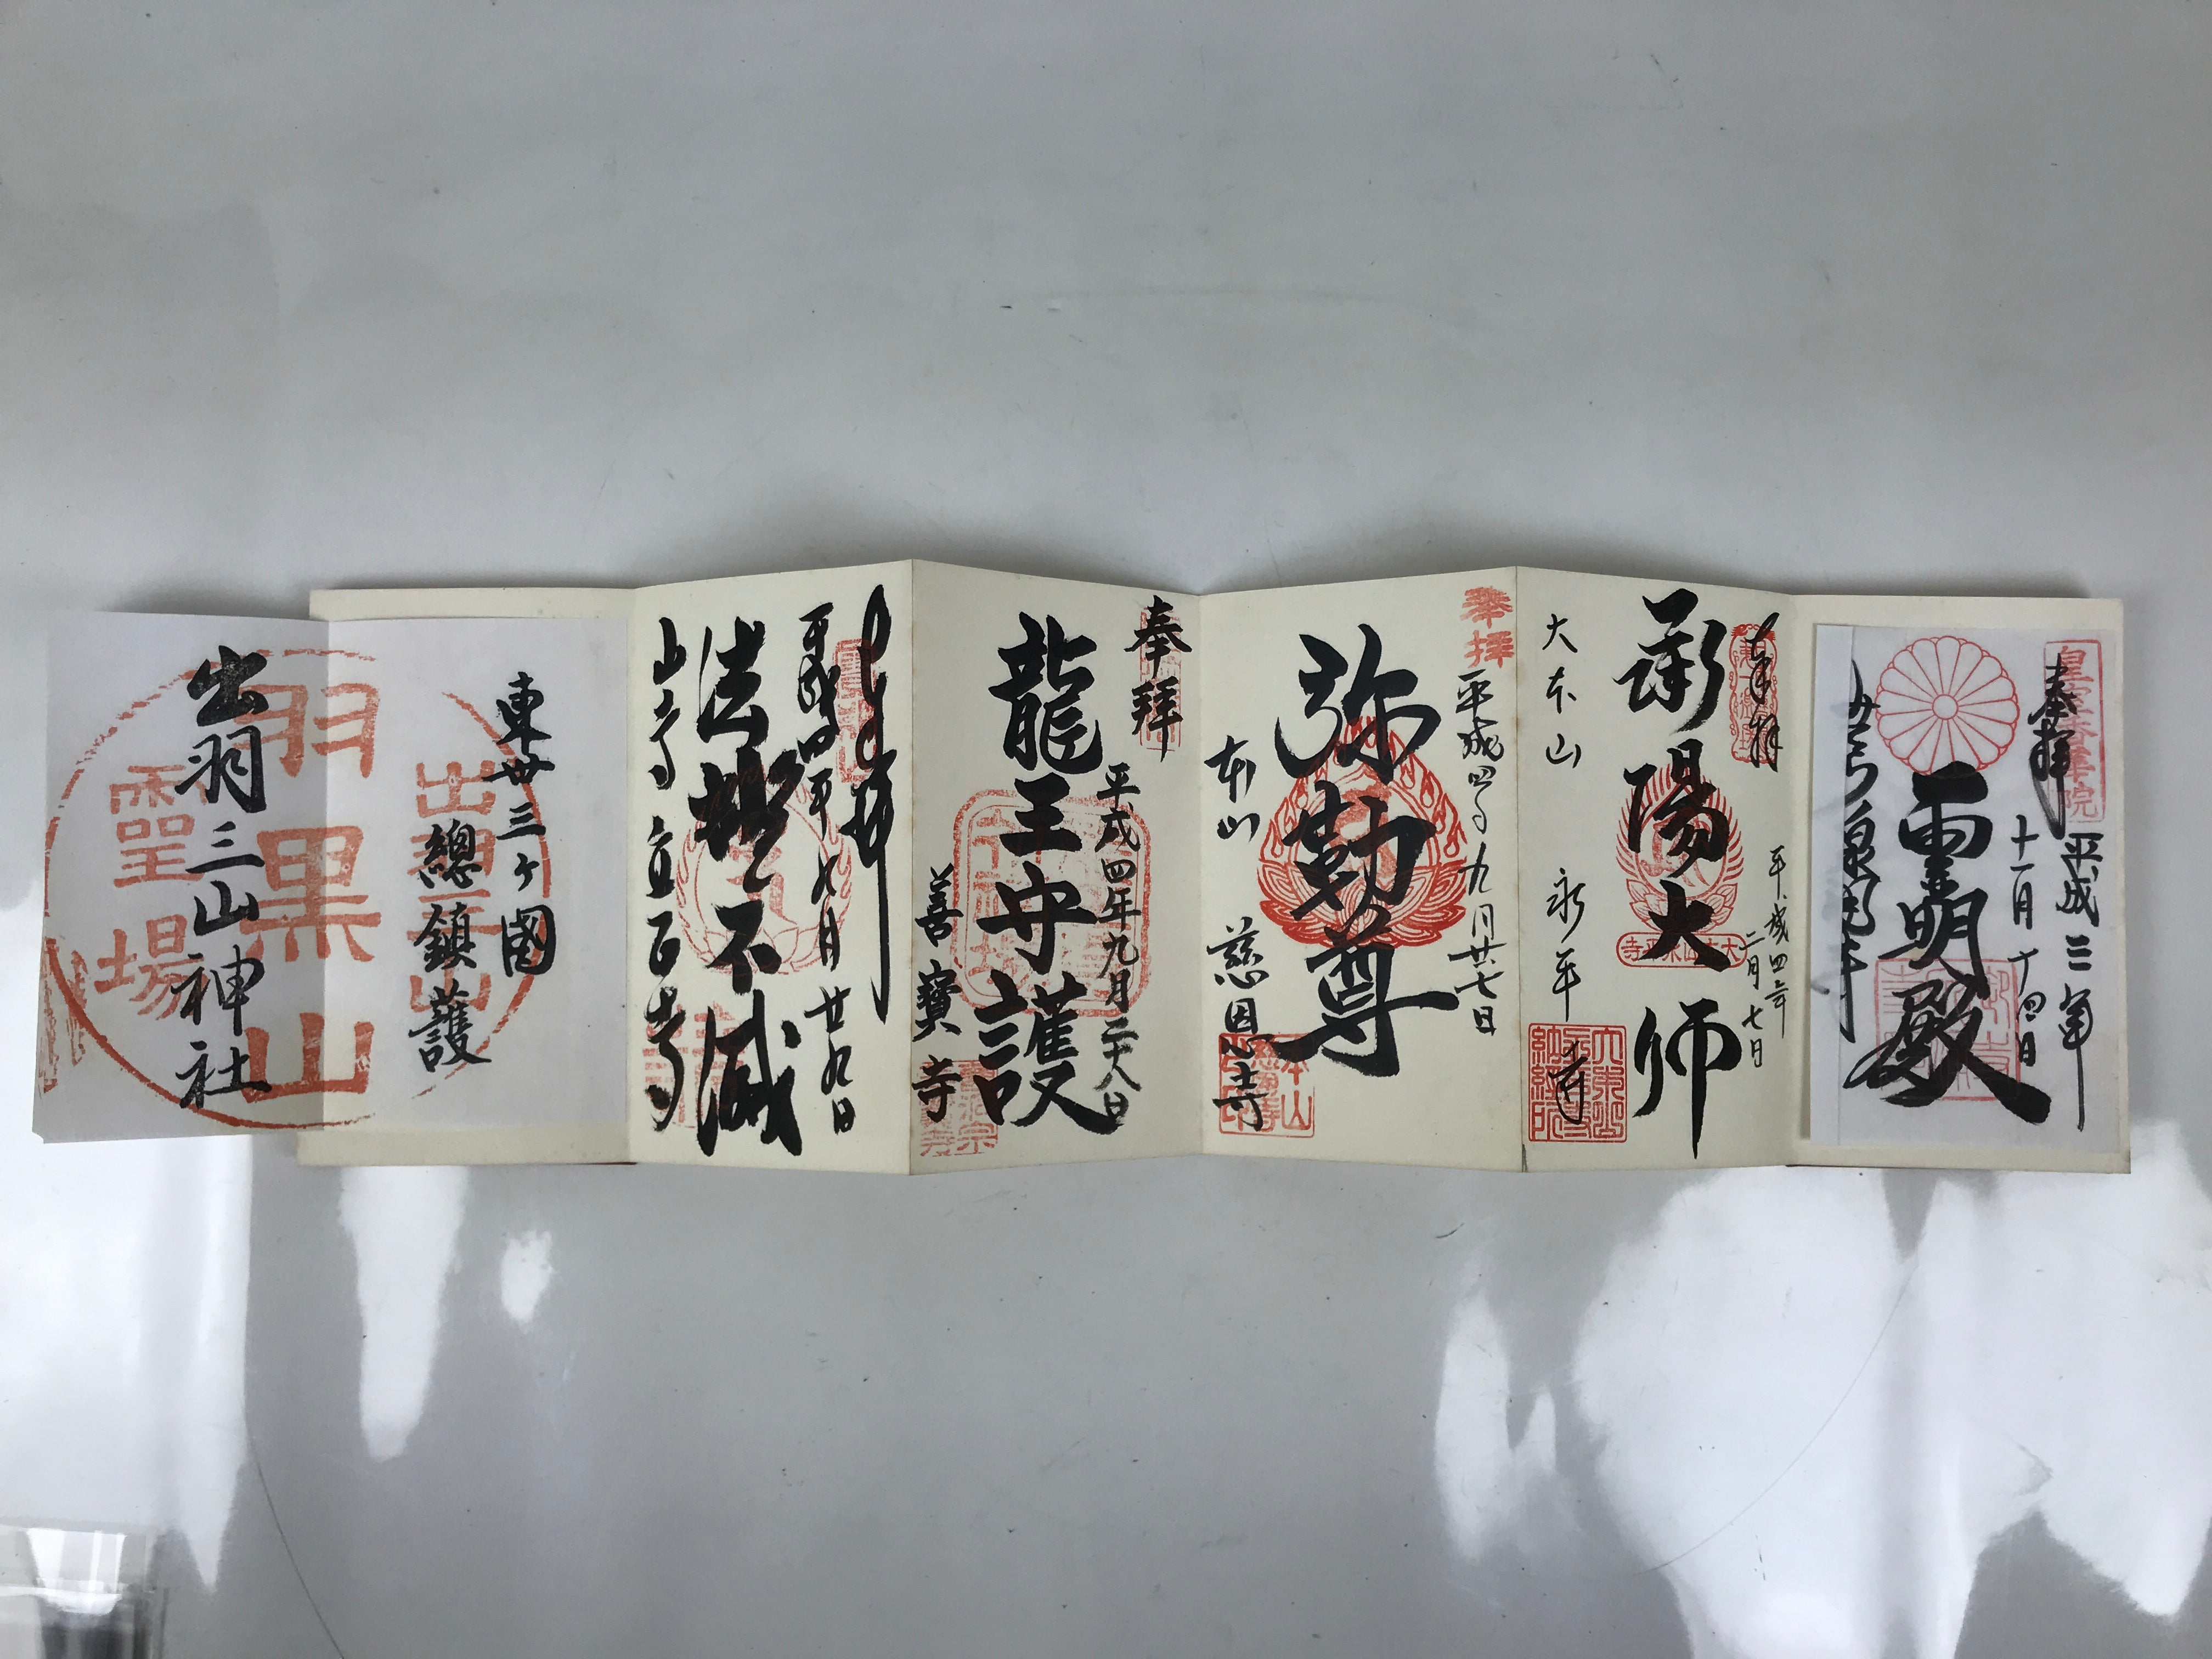 奉拝
平成三年
十一月十四日
霊明殿
みてら泉涌寺
奉拝
平成四年
二月七日
承陽大师
大本山 永平寺
奉拝
平成四年九月廿七日
弥勒尊
本山 慈恩寺
奉拝
平成四年九月二十八日
龍王守護
善寳寺
奉拝
平成四年九月廿九日
法燈不滅
山寺立石寺
東卅三ヶ國
總鎮護
出羽三山
羽黒山
霊場
出羽三山神社